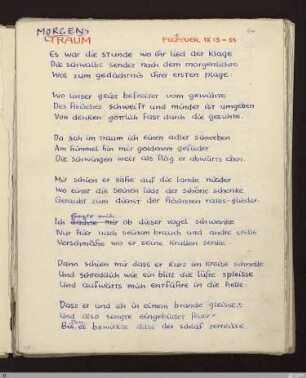 MORGEN
TRAUM
FEGFEUER IX 13-33
Es war die stunde wo ihr lied der klage
Die schwalbe sendet nach dem morgenlichte
Wol zum gedächtnis ihrer ersten plage.
Wo unser geist befreiter vom gewichte
Des fleisches schweift und minder ist umgeben
Von denken göttlich fast durch die gesichte.
Da sah im traum ich einen adler schweben
Am himmel hin mit goldenem gefieder
Die schwingen weit als flög er abwärts eben.
Mir schien er säße auf die lande nieder
Wo einst die Seinen liess der schöne schenke
Geraubt zum dienst der Höchsten rates-glieder.
sagte mir
Ich dachte mir ob dieser vogel schwenke
Nur hier nach seinem brauch und andre stille
Verschmähe wo er seine krallen senke.
Dann schien mir dass er kurz im kreise schnellte
Und schrecklich wie ein blitz die lüfte spleisse
Und aufwärts mich entführe in die helle.
Dass er und ich in einem brande gleisse:
Und also sengte eingebildet feuer
es bewirkte dass der schlaf zerreisse